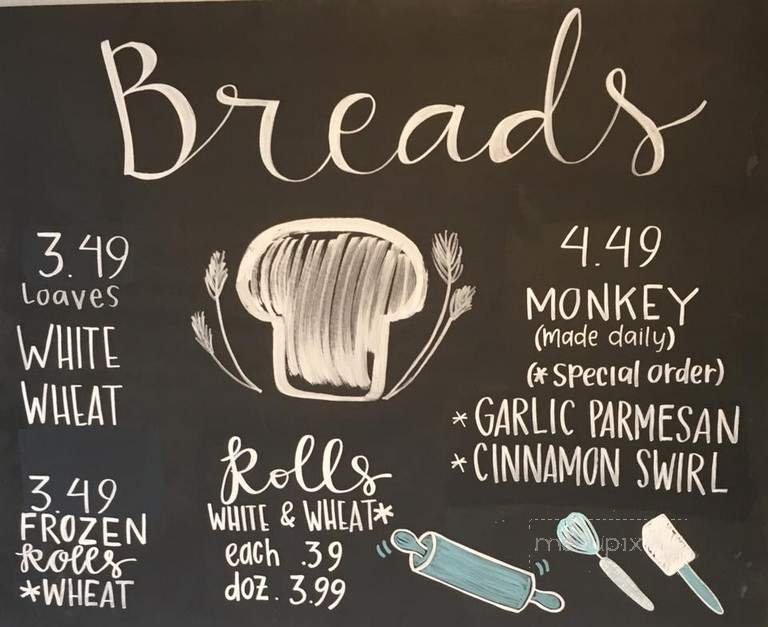 Breads
3.49
Loaves
WHITE
WHEAT
3.49
FROZEN
Rolls
*WHEAT
Rolls
WHITE & WHEAT*
each .39
doz. 3.99
4.49
MONKEY
(Made daily)
(*Special order)
*GARLIC PARMESAN
*CINNAMON SWIRL